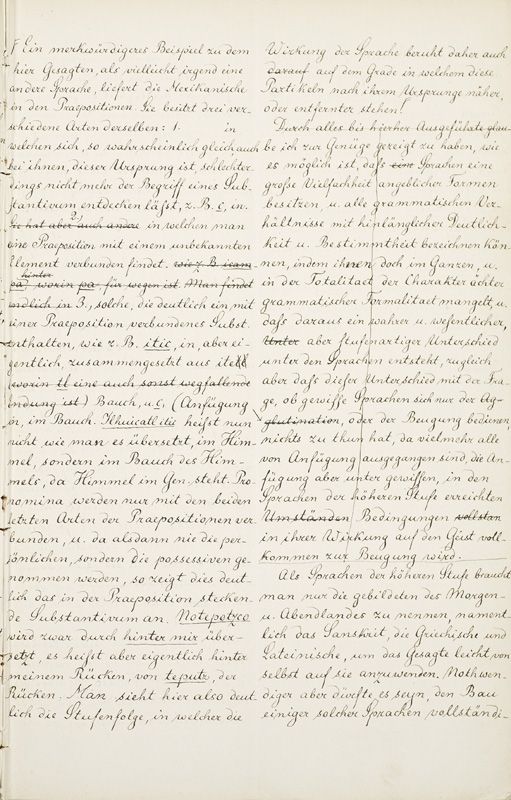 Ein merkwürdigeres Beispiel zu dem
hier Gesagten, als vielleicht irgend eine
andere Sprache, liefert die Mexikanische
in den Praepositionen. Sie besitzt drei ver-
schiedene Arten derselben: 1. in
welchen sich, so wahrscheinlich gleich auch
bei ihnen, dieser Ursprung ist, schlechter-
dings nicht mehr der Begriff eines Sub-
stantivum entdecken läfst, z. B. c, in.
Sie hat aber auch andre 2.) in welchen man
eine Praeposition mit einem unbekannten
Element verbunden findet. wie z. B. icam-
hinter
pa, worin pa, für wegen ist. Man findet
endlich in 3., solche, die deutlich ein mit
einer Praeposition verbundenes Subst.
enthalten, wie z. B. itic, in, aber ei-
gentlich, zusammengesetzt aus itetl
(worin tl eine auch sonst wegfallende
Endung ist) Bauch, u. c, (Anfügung
in, im Bauch. Ilhuicatl itic heifst nun
nicht wie man es übersetzt, im Him-
mel, sondern im Bauch des Him-
mels, da Himmel im Gen. steht. Pro-
nomina werden nur mit den beiden
letzten Arten der Praepositionen ver-
bunden, u. da alsdann nie die per-
sönlichen, sondern die possessiven ge-
nommen werden, so zeigt dies deut-
lich das in der Praeposition stecken-
de Substantivum an. Notepotzco
wird zwar durch hinter mir über-
setzt, es heifst aber eigentlich hinter
meinem Rücken, von teputz, der
Rücken. Man sieht hier also deut-
lich die Stufenfolge, in welcher die
Wirkung der Sprache beruht daher auch
darauf auf dem Grade in welchem diese
Partikeln nach ihrem Ursprunge näher,
oder entfernter stehen!
Durch alles bis hierher Ausgeführte glau-
be ich zur Genüge gezeigt zu haben, wie
es möglich ist, dafs eine Sprachen eine
grofse Vielfachheit angeblicher Formen
besitzen, u. alle grammatischen Ver-
hältnisse mit hinlänglicher Deutlich-
keit u. Bestimmtheit bezeichnen kön-
nen, indem ihnen doch im Ganzen, u.
in der Totalitaet der Charakter ächter
grammatischer Formalitaet mangelt, u.
dafs daraus ein wahrer u. wesentlicher,
Unter aber stufenartiger Unterschied
unter den Sprachen entsteht, zugleich
aber dafs dieser Unterschied mit der Fra-
ge, ob gewisse Sprachen sich nur der Ag-
glutination, oder der Beugung bedienen,
nichts zu thun hat, da vielmehr alle
von Anfügung ausgegangen sind, die An-
fügung aber unter gewissen, in den
Sprachen der höheren Stufe erreichten
Umständen Bedingungen vollstän
in ihrer Wirkung auf den Geist voll-
kommen zur Beugung wird.
Als Sprachen der höheren Stufe braucht
man nur die gebildeten des Morgen-
u. Abendlandes zu nennen, nament-
lich das Sanskrit, die Griechische und
Lateinische, um das Gesagte leicht von
selbst auf sie anzuwenden. Nothwen-
diger aber dürfte es seyn, den Bau
einiger solcher Sprachen vollständi-